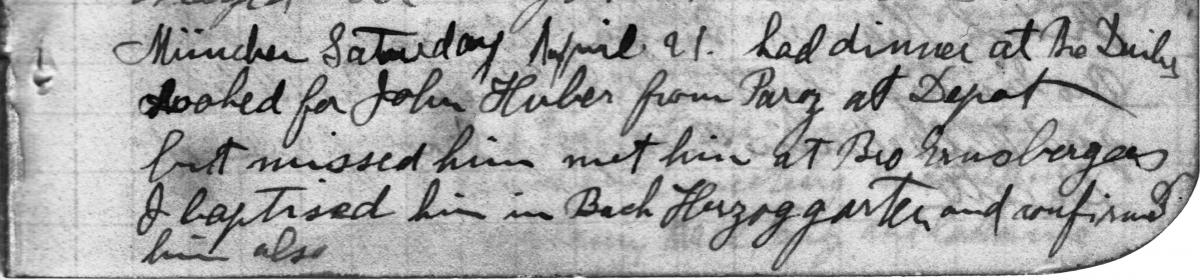 München Saturday April 21. had dinner at the
looked for John Huber from Paroz at Depot
but missed him met him at Bro Ernsbergers
I baptised him in Bach Herzoggarten and confirmed
him also